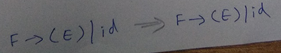 F → (E) | id ⇒ F → (E) | id